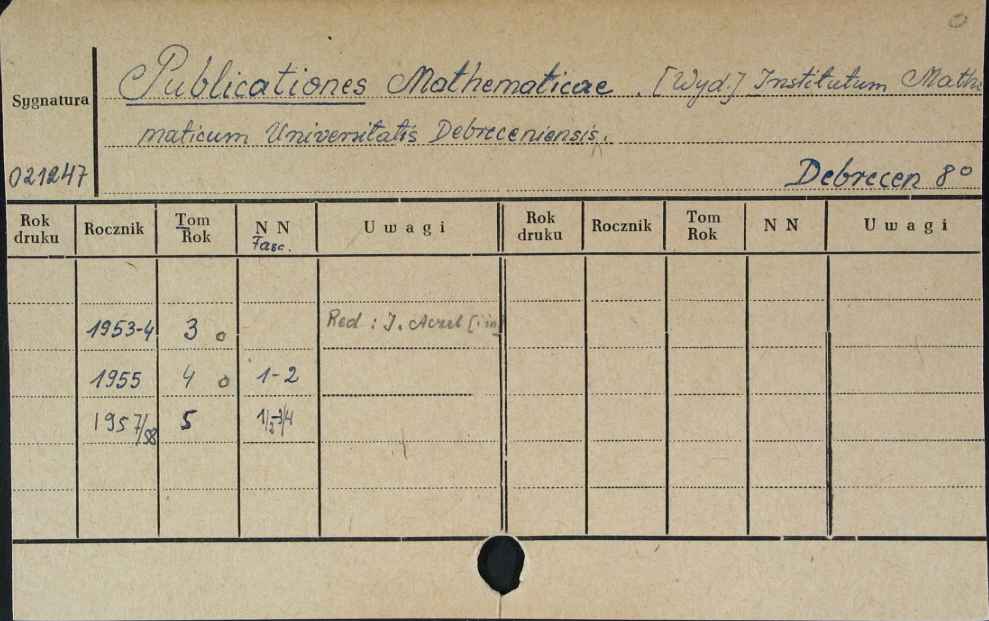 o
Publicationes Mathematicae. [Wyd.] Institutum Mathe
maticum Universitatis Debreceniensis.
Sygnatura
021247
Debrecen 8º
Rok druku Rocznik Tom Rok N N Fasc. U w a g i Rok druku Rocznik Tom Rok N N U w a g i
1953-4 3 o Red : J. Aczel [i in]
1955 4 o 1-2
1957/58 5 1/2-3/4